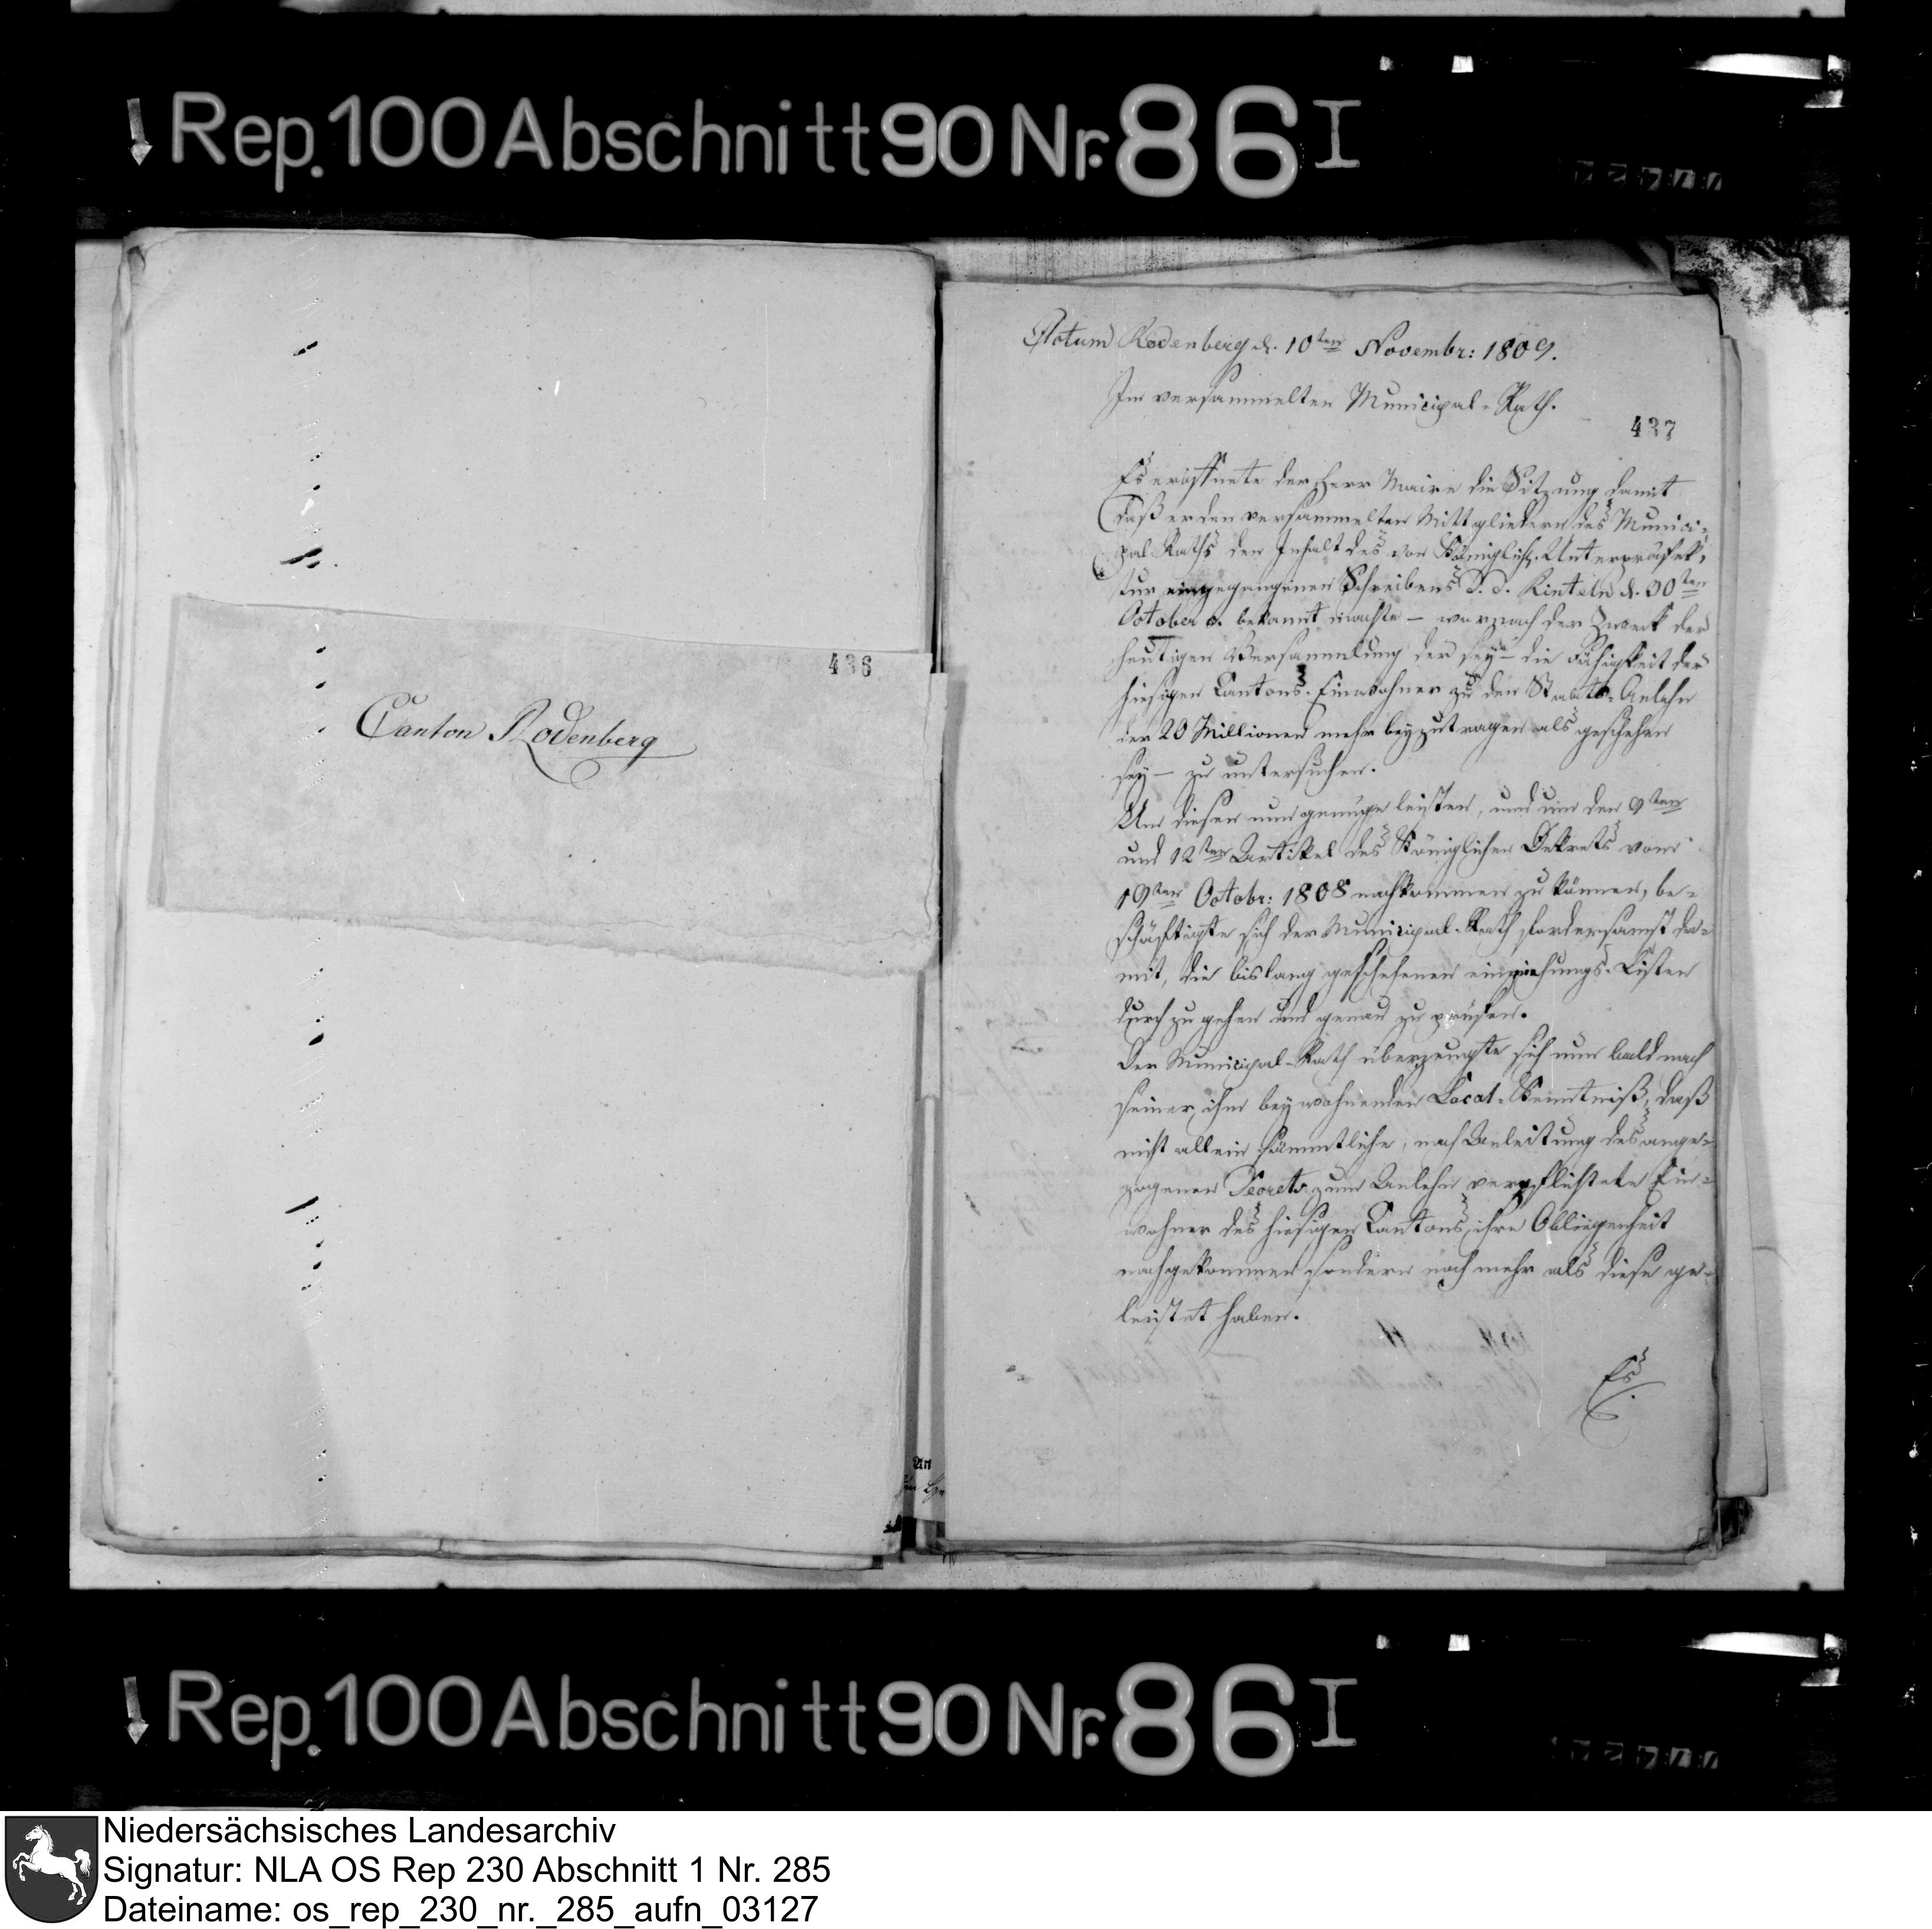 Rep. 100 Abschnitt 90 Nr. 86 I
436
Canton Rodenberg
Actum Rodenberg d. 10ten Novembr: 1809.
Im versammelten Municipal-Rath.
437
Es eröffnete der Herr Maire die Sitzung damit
daß er den versammelten Mittgliedern des Munici-
pal-Raths den Inhalt des von Königlich. Unterpräfek-
tur eingegangenen Schreibens d. d. Rinteln d. 30ten
October c. bekannt machte – wornach der Zweck der
heutigen Versammlung der sey – die Fähigkeit der
hiesigen Cantons-Einwohner zu den Staats-Anlehn
der 20 Millionen mehr beyzutragen als geschehen
sey – zu untersuchen.
Um diesen nun genüge leisten, und um den 9ten
und 12ten Artikel des Königlichen Dekrets vom
19ten Octobr: 1808 nachkommen zu können, be-
schäftigte sich der Municipal-Rath fordersamst da-
mit, die bislang geschehenen einziehungs-Listen
durch zu gehen und genau zu prüfen.
Der Municipal-Rath überzeugte sich nun bald nach
seiner ihm beywohnenden Local-Kenntniß, daß
nicht allein sämmtliche, nach Anleitung des ange-
zogenen Decrets zum Anlehn verpflichtete Ein-
wohner des hiesigen Cantons, ihre Obliegenheit
nachgekommen sondern noch mehr als diese ge-
leistet haben.
Es
An
Rep. 100 Abschnitt 90 Nr. 86 I
Niedersächsisches Landesarchiv
Signatur: NLA OS Rep 230 Abschnitt 1 Nr. 285
Dateiname: os_rep_230_nr._285_aufn_03127